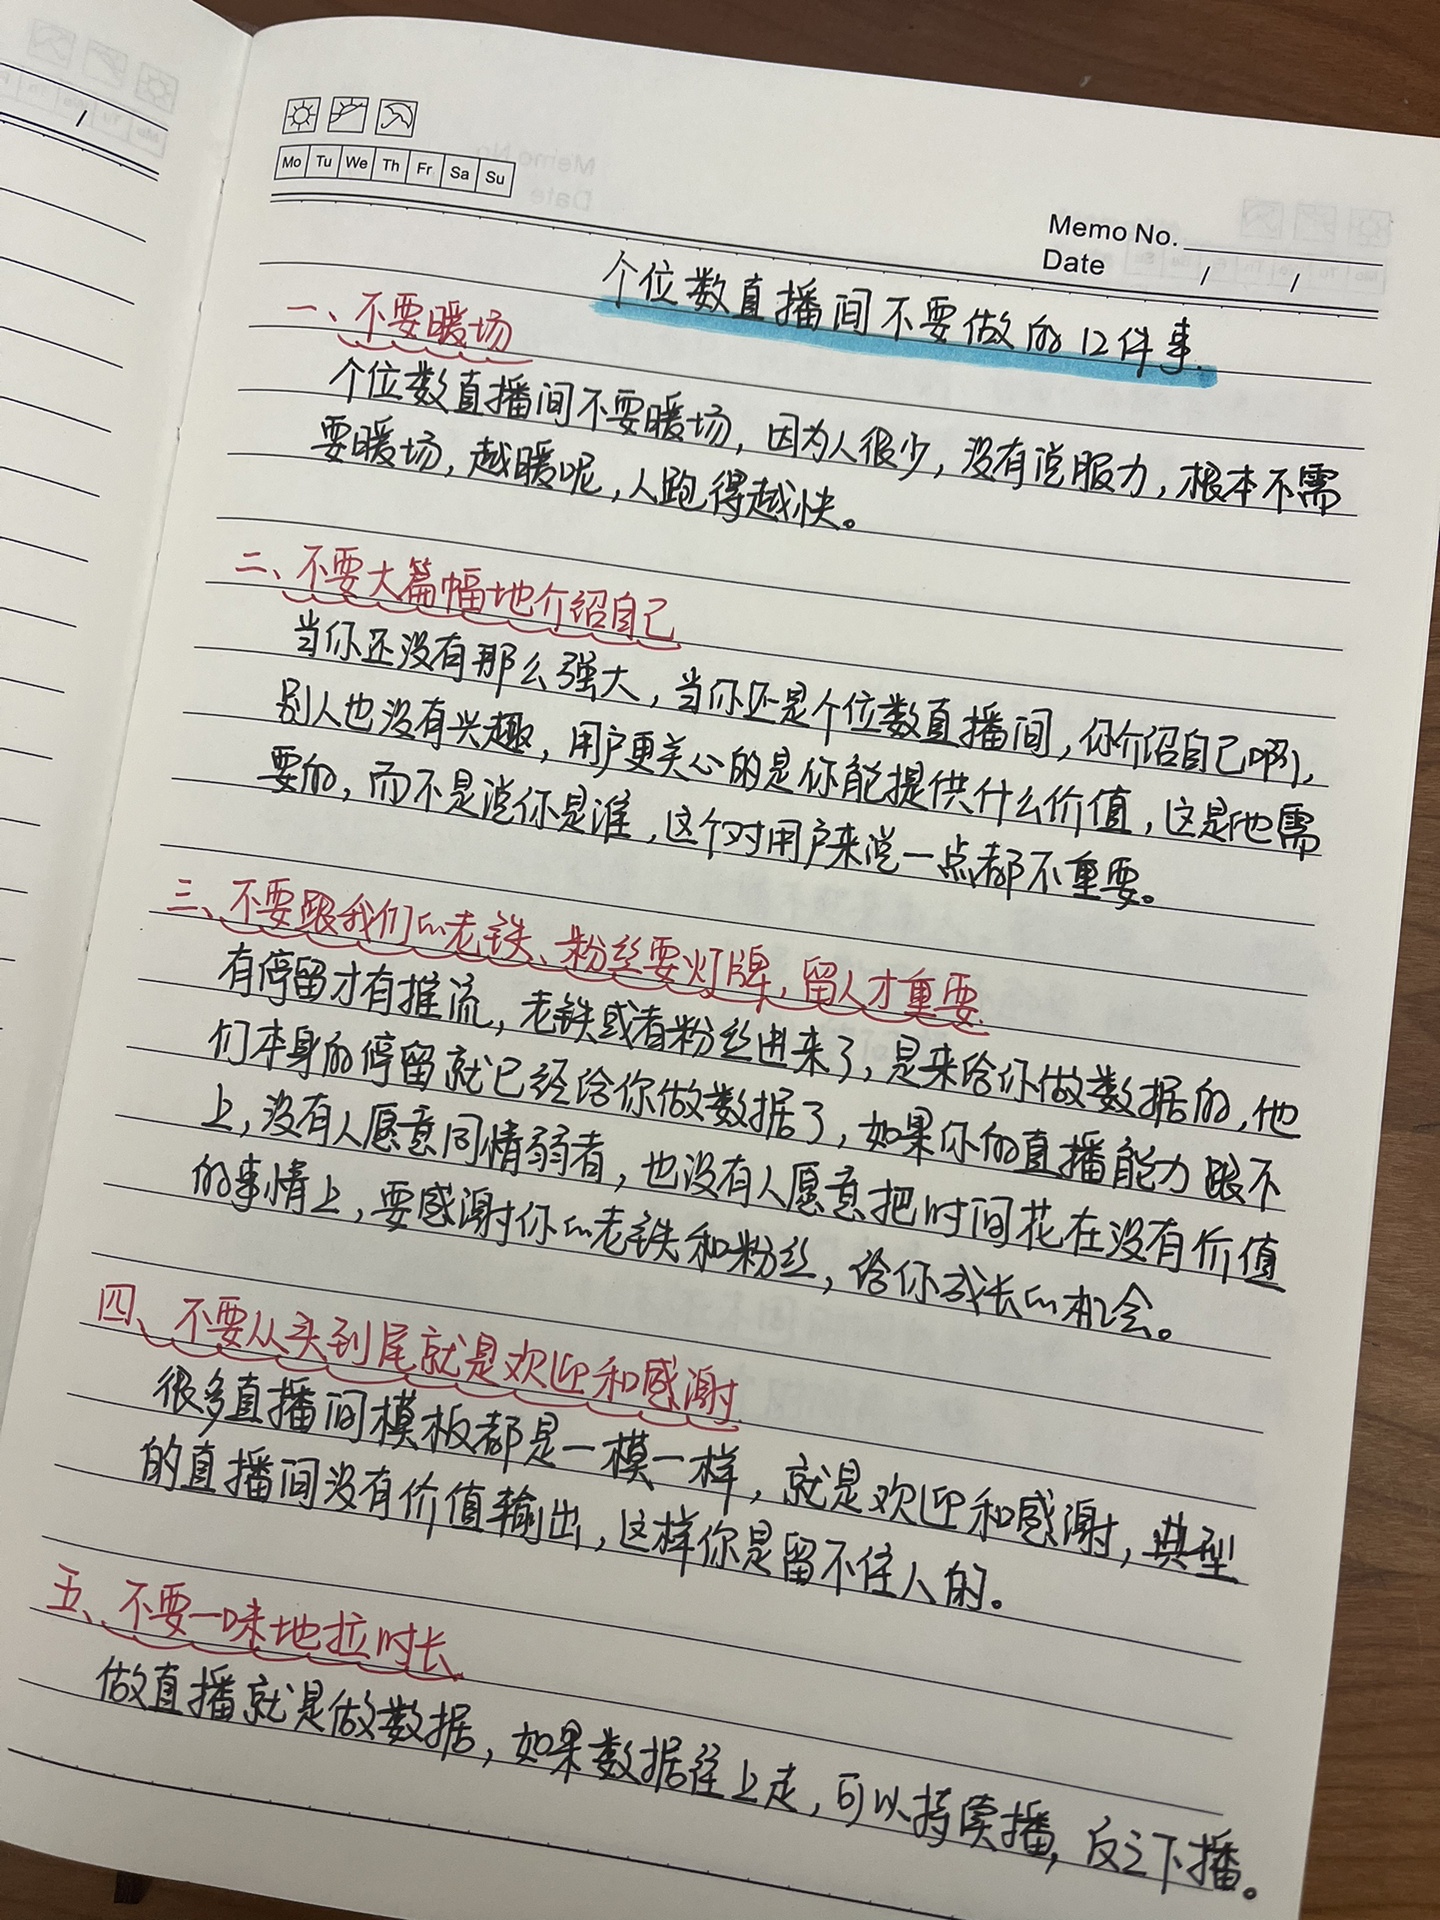 Mo Tu We Th Fr Sa Su
Memo No.
Date / /
个位数直播间不要做的12件事.
一、不要暖场
个位数直播间不要暖场，因为人很少，没有说服力，根本不需
要暖场，越暖呢，人跑得越快。
二、不要大篇幅地介绍自己
当你还没有那么强大，当你还是个位数直播间，你介绍自己啊，
别人也没有兴趣，用户更关心的是你能提供什么价值，这是他需
要的，而不是说你是谁，这个对用户来说一点都不重要。
三、不要跟我们的老铁、粉丝要灯牌，留人才重要
有停留才有推流，老铁或者粉丝进来了，是来给你做数据的，他
们本身的停留就已经给你做数据了，如果你的直播能力跟不
上，没有人愿意同情弱者，也没有人愿意把时间花在没有价值
的事情上，要感谢你的老铁和粉丝，给你成长的机会。
四、不要从头到尾就是欢迎和感谢
很多直播间模板都是一模一样，就是欢迎和感谢，典型
的直播间没有价值输出，这样你是留不住人的。
五、不要一味地拉时长
做直播就是做数据，如果数据往上走，可以持续播，反之下播。